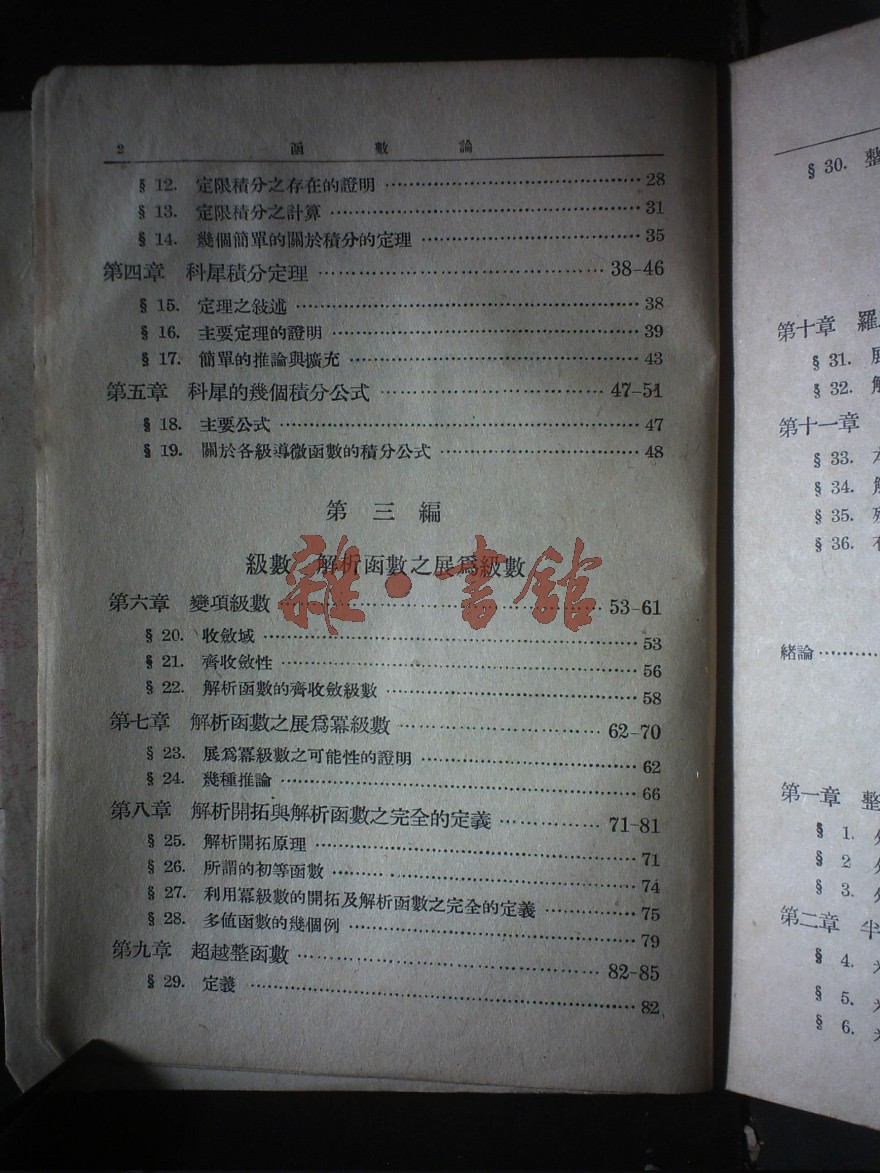 2 函數論
§ 12. 定限積分之存在的證明 28
§ 13. 定限積分之計算 31
§ 14. 幾個簡單的關於積分的定理 35
第四章 科犀積分定理 38-46
§ 15. 定理之敍述 38
§ 16. 主要定理的證明 39
§ 17. 簡單的推論與擴充 43
第五章 科犀的幾個積分公式 47-51
§ 18. 主要公式 47
§ 19. 關於各級導微函數的積分公式 48
第三編
級數 解析函數之展爲級數
雜·書館
第六章 變項級數 53-61
§ 20. 收斂域 53
§ 21. 齊收斂性 56
§ 22. 解析函數的齊收斂級數 58
第七章 解析函數之展爲冪級數 62-70
§ 23. 展爲冪級數之可能性的證明 62
§ 24. 幾種推論 66
第八章 解析開拓與解析函數之完全的定義 71-81
§ 25. 解析開拓原理 71
§ 26. 所謂的初等函數 74
§ 27. 利用冪級數的開拓及解析函數之完全的定義 75
§ 28. 多値函數的幾個例 79
第九章 超越整函數 82-85
§ 29. 定義 82
§ 30. 整
第十章 羅
§ 31.
§ 32.
第十一章
§ 33.
§ 34.
§ 35.
§ 36.
緒論
第一章 整
§ 1.
§ 2
§ 3.
第二章
§ 4.
§ 5.
§ 6.